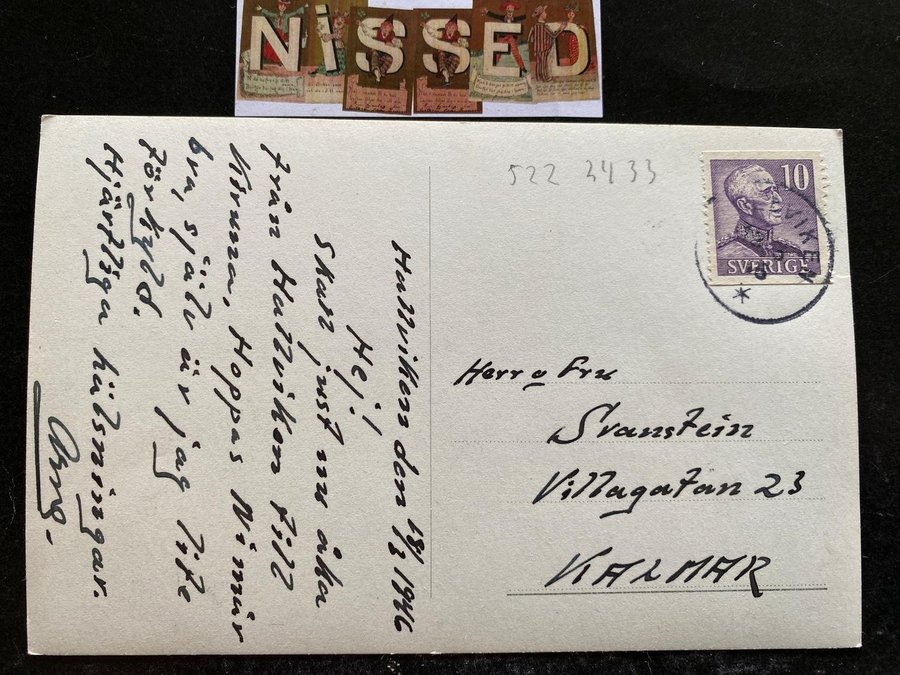 NiSSED
522 34 33
10
SVERIGE
VIKEN
Hallviken den 18/2 1946
Hej!
Skall just nu åka
från Hallviken till
Kinna, Hoppas Ni mår
bra, själv är jag lite
förkyld.
Hjärtliga hälsningar.
Herr o Fru
Svanstein
Villagatan 23
KALMAR